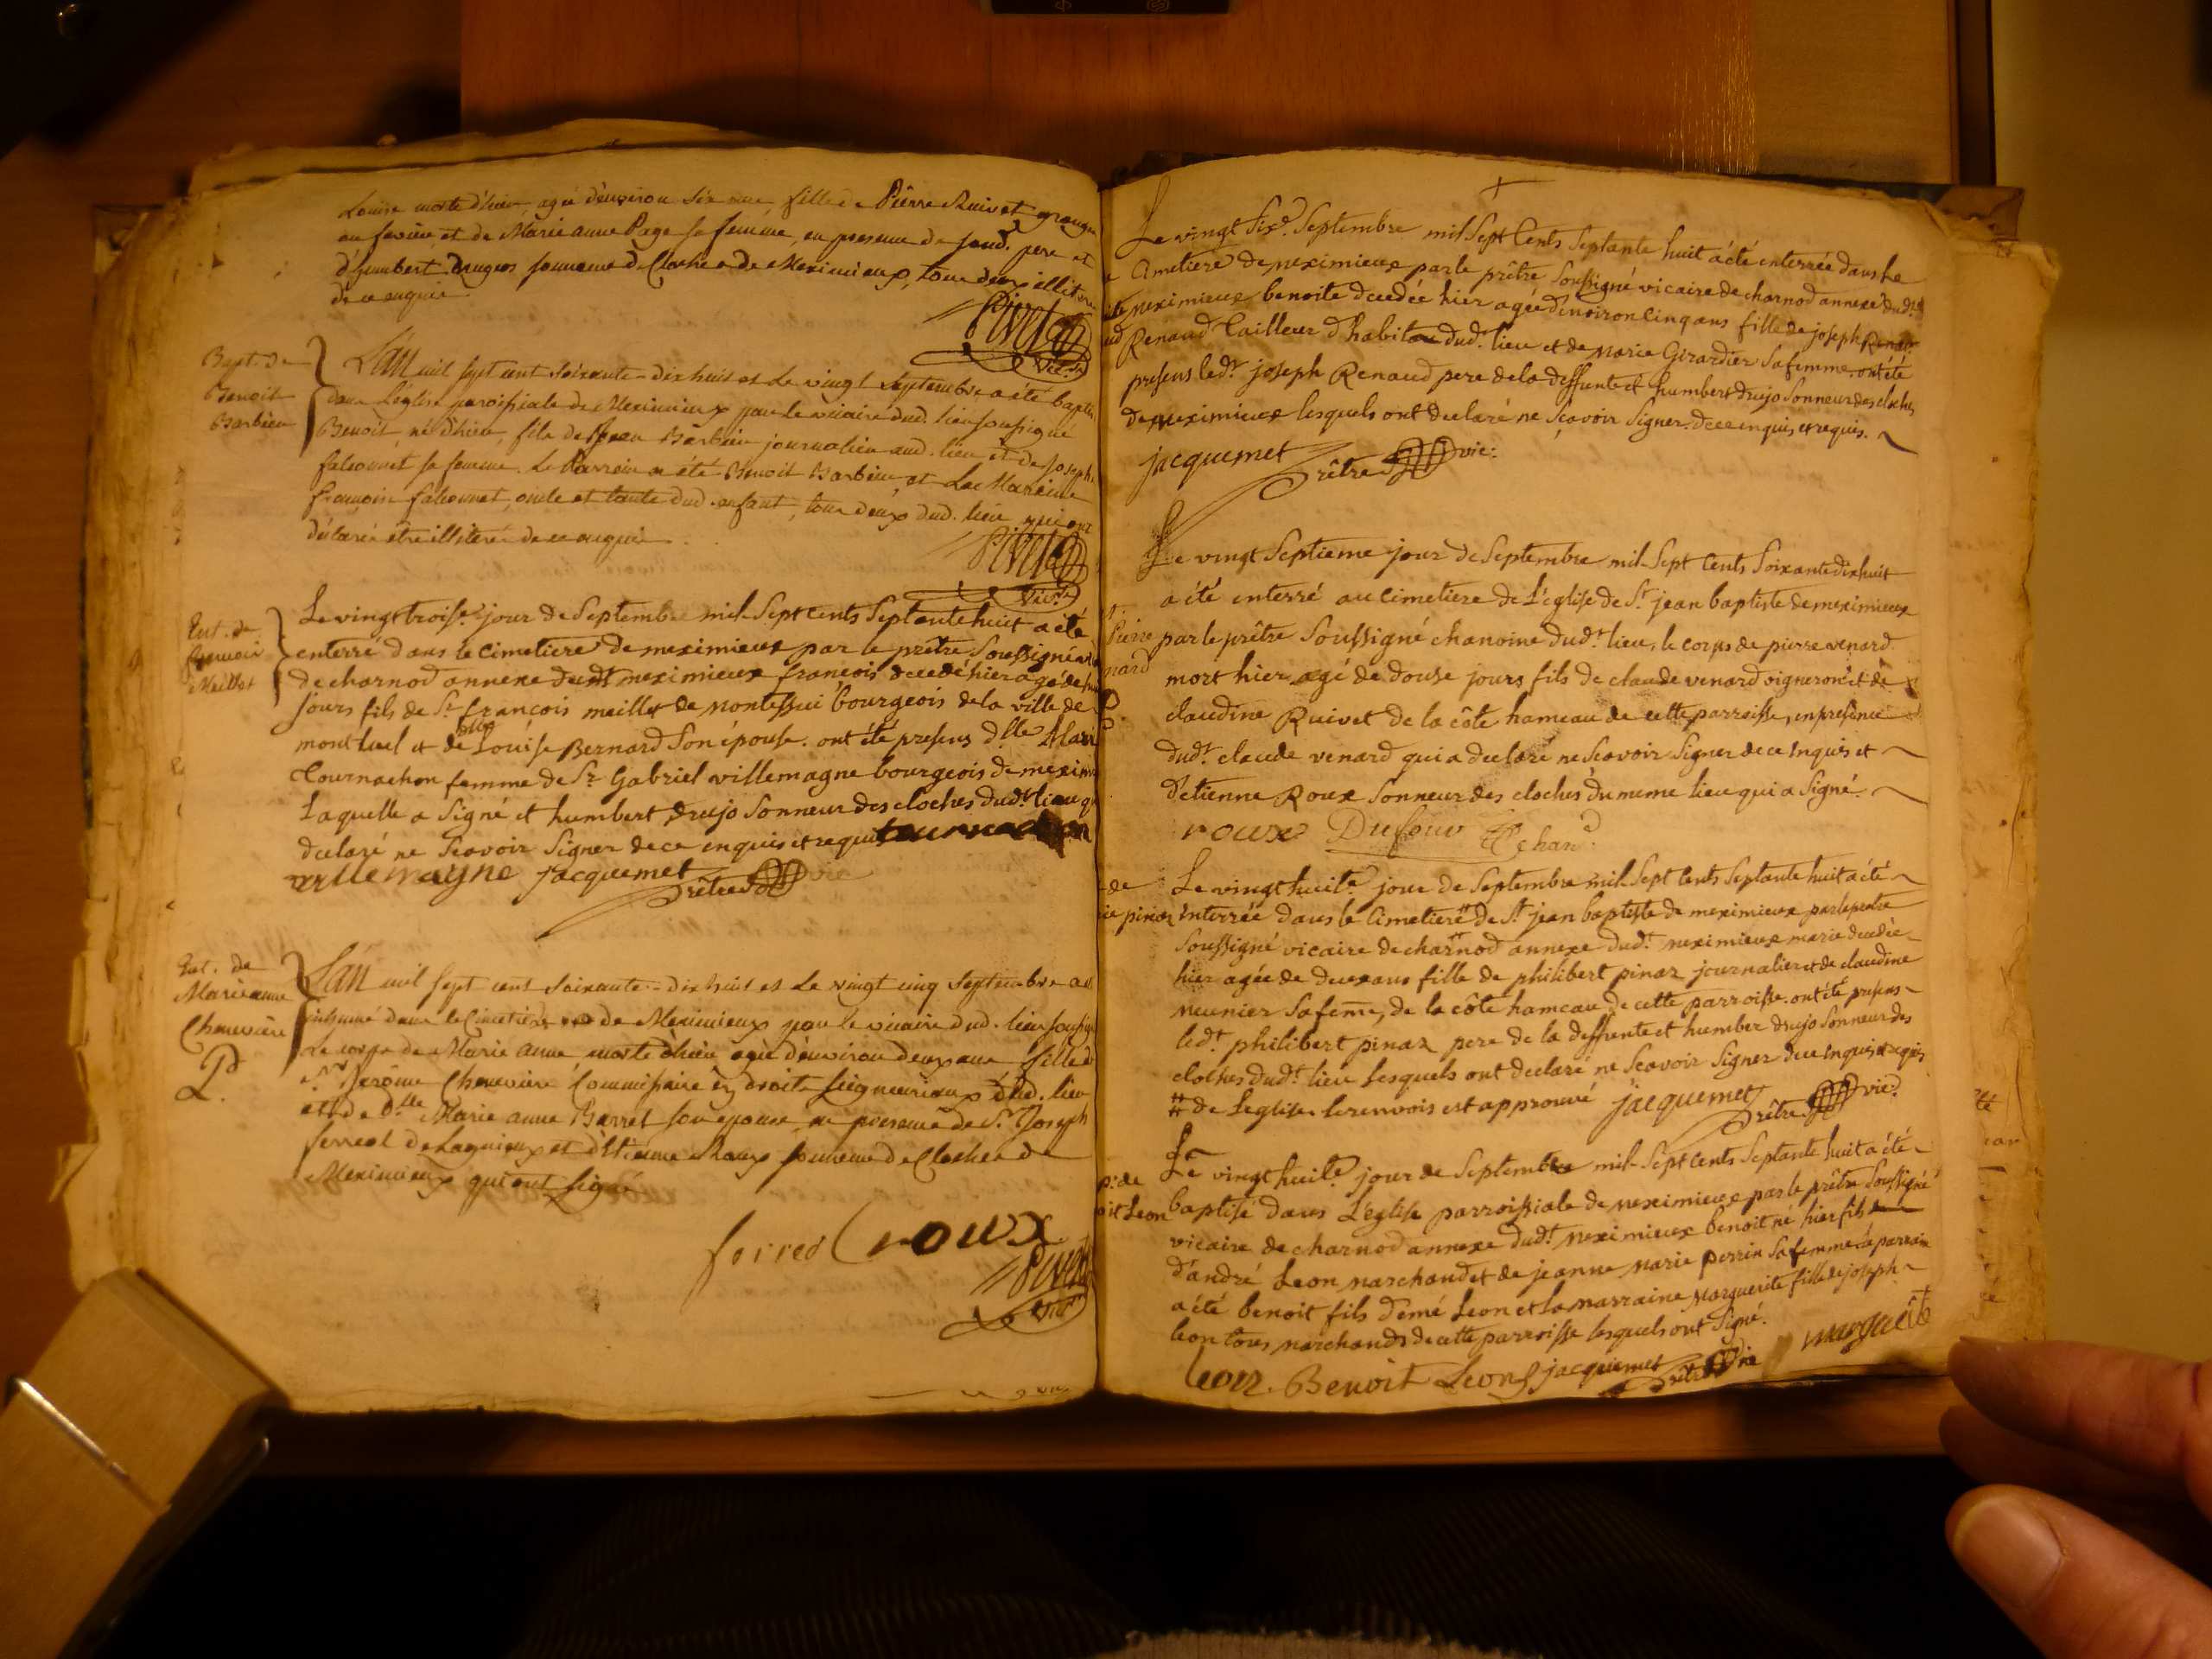 Louise morte d'hier, agée d'environ six ans fille de Pierre Ruivet granger
au et de Marie anne Page sa femme, en presence de sond. pere et
d'humbert Drugeos sonneur de Cloches de Meximieux, tous deux illiteré
de ce enquis
Pivet
Vic.re
Bapt. de
Benoit
Barbier
L'an mil sept cent soixante-dixhuit et le vingt Septembre a été baptisé
dans l'église paroissiale de Meximieux par le vicaire dud. lieu soussigné
Benoit, né d'hier, fils de Barbier journalier aud. lieu et de Joseph
falconnet sa femme. Le Parrain a été Benoit Barbier, et La Marraine
françoise falconnet, oncle et tante dud. enfant, tous deux dud. lieu qui ont
déclaré être illiteré de ce enquis.
Vic.re
Ent. de
françois
Meillet
Le vingt trois.e jour de Septembre mil Sept Cents Septante huit a été
enterré dans le Cimetiere de meximieux par le prêtre Soussigné
de charnod annexe dudt meximieux françois decedé hier agé de
jours fils de Sr. françois meillet de Montessui bourgeois de la ville de
montluel et de dlle Louise Bernard Son épouse. ont été presens d.lle Mari
Tournachon femme de Sr. Gabriel villemagne bourgeois de mexim
Laquelle a Signé et humbert drujo Sonneur des cloches dudt. lieu q
declaré ne Sçavoir Signer de ce enquis et requis tournachon
villemagne jacquemet Prêtre vic
Ent. de
Marieanne
Chenevière
L'an mil sept cent soixante-dixhuit et Le vingt cinq Septembre a été
inhumé dans le Cimetiere de Meximieux par le vicaire dud. lieu soussig
Le corps de Marie Anne morte d'hier, agée d'environ deux ans fille d
Sr. Jerôme Chenevière Commissaire en droits seigneuriaux dud. lieu
et de D.lle Marie anne Barret son epouse, en presence de Sr. Joseph
ferreol de Lagnieux et d'Etienne Roux sonneur de Cloches de
Meximieux qui ont signé
roux
Vic.re
Le vingt Six.e Septembre mil Sept Cents Septante huit a été enterrée dans Le
Cimetiere de meximieux par le prêtre Soussigné vicaire de charnod annexe dudt.
meximieux benoite decedée hier agée d'environ Cinq ans fille de joseph
Renaud Tailleur d'habits dud. lieu et de Marie Girardier Safemme. ont été
presens ledt. joseph Renaud pere de la deffunte et humbert drujo Sonneur des cloches
de meximieux lesquels ont declaré ne Sçavoir Signer. de ce enquis et requis.
jacquemet Prêtre vic:
Pierre
nard
Le vingt Septieme jour de Septembre mil Sept Cents Soixante dix huit
a été enterré au Cimetiere de L'eglise de St. jean baptiste de meximieux
par le prêtre Soussigné chanoine dudt. lieu, le corps de pierre venard
mort hier agé de douse jours fils de claude venard vigneron et de
claudine Ruivet de la côte hameau de cette parroisse, en presence
dudt. claude venard qui a declaré ne Scavoir Signer de ce Inquis et
d'etienne Roux Sonneur des cloches du meme lieu qui a Signé.
roux Dufour chan.
de
ie pinaz
Le vingt huit.e jour de Septembre mil Sept Cents Septante huit a été
Interrée dans le Cimetiere # de St. jean baptiste de meximieux par le prêtre
Soussigné vicaire de charnod annexe dudt. meximieux marie decedée
hier agée de deux ans fille de philibert pinaz journalier et de claudine
meunier Safeme, de la côte hameau de cette parroisse. ont été presens
ledt. philibert pinaz pere de la deffunte et humber drujo Sonneur des
cloches dudt. lieu Lesquels ont declaré ne Scavoir Signer de ce Inquis et requis
# de Leglise. le renvois est approuvé jacquemet Prêtre vic.
p. de
oit Leon
Le vingt huit.e jour de Septembre mil Sept Cents Septante huit a été
baptisé dans L'eglise parroissiale de meximieux par le prêtre Soussigné
vicaire de charnod annexe dudt. meximieux benoit né hier fils
d'andré Leon marchand et de jeanne marie perrin Safemme. le parrain
a été benoit fils d'emé Leon et La marraine Marguerite fille de joseph
leon tous marchands de cette parroisse lesquels ont Signé.
marguerite
leon. Benoit Leon jacquemet Prêtre vic